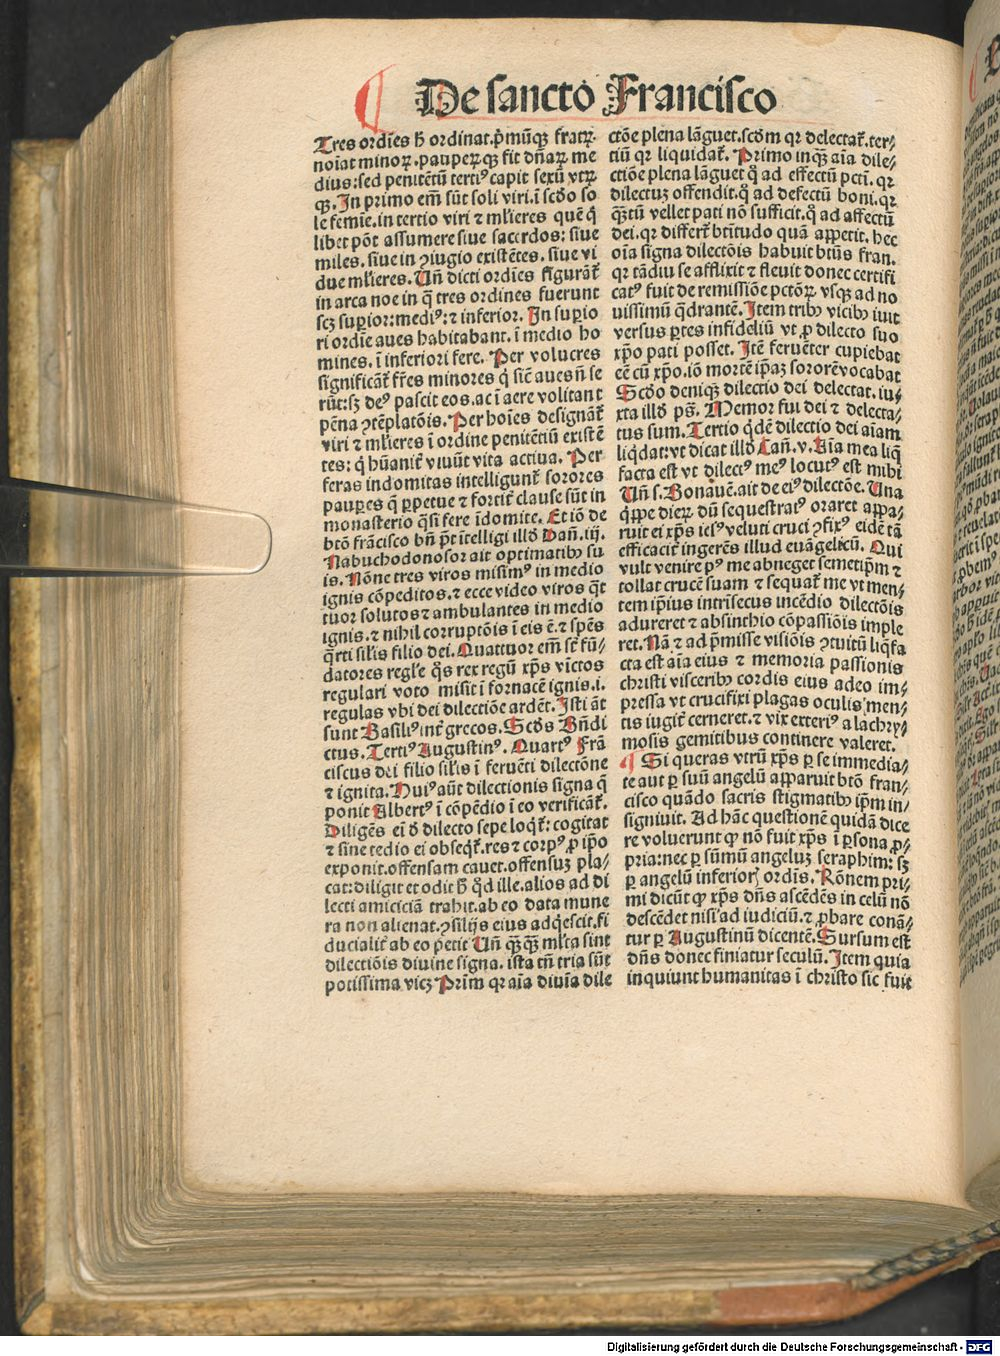 De sancto Francisco
Tres ordīes h̄ ordinat. p̄mūqꝫ fratrꝝ
noīat minoꝝ. pauperꝝqꝫ fit dn̄aꝝ me
dius: sed penitētū tertiꝰ capit sexū vtrū
qꝫ. In primo em̄ sūt soli viri. ī scd̓o so
le femīe. in tertio viri ⁊ mlīeres quē q̄
libet pōt assumere siue sacerdos: siue
miles. siue in ꝯiugio existētes. siue vi
due mlīeres. Vn̄ dicti ordīes figurāt̄
in arca noe in q̄ tres ordines fuerunt
scꝫ suꝑior: mediꝰ: ⁊ inferior. In suꝑio
ri ordīe aues habitabant. ī medio ho
mines. ī inferiori fere. Per volucres
significāt̄ fr̄es minores q̇ sic̄ aues n̄ se
rūt: sꝫ deꝰ pascit eos. ac ī aere volitant
pēna ꝯtēplatōis. Per hoīes designāt̄
viri ⁊ mlīeres ī ordine penitētiū existē
tes: q̇ hūanit̄ viuūt vita actiua. Per
feras indomitas intelligunt̄ sorores
pauꝑes q̄ ꝑpetue ⁊ fortit̄ clause sūt in
monasterio q̄si fere īdomite. Et iō de
btō frācisco bn̄ pn̄t ītelligi illd̓ Dan̄. iij.
Nabuchodonosor ait optimatibꝫ su
is. Nōne tres viros misimꝰ in medio
ignis cōpeditos. ⁊ ecce video viros q̄t
tuor solutos ⁊ ambulantes in medio
ignis. ⁊ nihil corruptōis ī eis ē. ⁊ spēs
q̄rti sil̄is filio dei. Quattuor em̄ st̄ fū⸗
datores regl̄e q̄s rex regū xp̄s victos
regulari voto misit ī fornacē ignis. i.
regulas vbi dei dilectiōe ardēt. Isti āt
sunt Basiliꝰ int̄ grecos. Scd̓s Bn̄di
ctus. Tertiꝰ Augustinꝰ. Quartꝰ Frā
ciscus dei filio sil̄is ī feruēti dilectōne
⁊ ignita. Huiꝰ aūt dilectionis signa q̄
ponit Albertꝰ ī cōpēdio ī eo verificāt̄.
Diligēs ei d̓ dilecto sepe loqt̄: cogitat
⁊ sine tedio ei obseqt̄. res ⁊ corpꝰ ꝓ ip̄o
exponit. offensam cauet. offensuꝫ pla⸗
cat: diligit et odit h̄ qd̓ ille. alios ad di
lecti amiciciā trahit. ab eo data mune
ra non alienat. ꝯsilijs eius adqescit. fi
ducialit̄ ab eo petit Vn̄ qꝫqꝫ ml̄ta sint
dilectiōis diuine signa. ista tn̄ tria sūt
potissima vicꝫ Prim̄ qꝛ aīa diuīa dile
ctōe plena lāguet. scd̓m qꝛ delectat̄. ter⸗
tiū qꝛ liquidat̄. Primo inqꝫ aīa dile⸗
ctiōe plena lāguet q̊ ad effectū pcti. qꝛ
dilectuꝫ offendit. q̊ ad defectū boni. qꝛ
qꝫtū vellet pati nō sufficit. q̊ ad affectū
dei. qꝛ differt̄ btītudo quā appetit. hec
oīa signa dilectōis habuit btūs fran.
qꝛ tādiu se afflixit ⁊ fleuit donec certifi
catꝰ fuit de remissiōe pctōꝝ vsqꝫ ad no
uissimū q̄drantē. Item tribꝫ vicibꝫ iuit
versus ꝑtes infideliū vt ꝓ dilecto suo
xp̄o pati posset. Itē feruēter cupiebat
eē cū xp̄o. iō mortē ip̄aꝫ sororē vocabat
Scd̓o deniqꝫ dilectio dei delectat. iu⸗
xta illd̓ ps̄. Memor fui dei ⁊ delecta⸗
tus sum. Tertio qd̓ē dilectio dei aīam
liqdat: vt dicat illd̓ Can̄. v. Aīa mea liq̄
facta est vt dilectꝰ meꝰ locutꝰ est mihi
Vn̄ s. Bonauē. ait de eiꝰ dilectōe. Una
q̄ꝑpe dieꝝ dū sequestratꝰ oraret appa⸗
ruit ei xp̄s iesꝰ veluti cruci ꝯfixꝰ eidē tā
efficacit̄ ingerēs illud euāgelicū. Qui
vult venire pꝰ me abneget semetip̄m ⁊
tollat crucē suam ⁊ sequat̄ me vt men⸗
tem ip̄ius intrīsecus incēdio dilectōis
adureret ⁊ absinthio cōpassiōis imple
ret. Nā ⁊ ad p̄misse visiōis ꝯtuitū liq̄fa
cta est aīa eius ⁊ memoria passionis
christi visceribꝫ cordis eius adeo im⸗
pressa vt crucifixi plagas oculis men⸗
tis iugit̄ cerneret. ⁊ vix exteriꝰ a lachry⸗
mosis gemitibus continere valeret.
¶ Si queras vtrū xp̄s ꝑ se immedia⸗
te aut ꝑ suū angelū apparuit btō fran⸗
cisco quādo sacris stigmatibꝫ ip̄m in⸗
signiuit. Ad hāc questionē quidā dice
re voluerunt qꝫ nō fuit xp̄s ī ꝑsona ꝓ⸗
pria: nec ꝑ sūmū angeluꝫ seraphim: sꝫ
ꝑ angelū inferioris ordīs. Rōnem pri⸗
mi dicūt qꝫ xp̄s dn̄s ascēdēs in celū nō
descēdet nisi ad iudiciū. ⁊ ꝓbare conā⸗
tur ꝑ Augustinū dicentē. Sursum est
dn̄s donec finiatur seculū. Item quia
inquiunt humanitas ī christo sic fuit
Digitalisierung gefördert durch die Deutsche Forschungsgemeinschaft - DFG